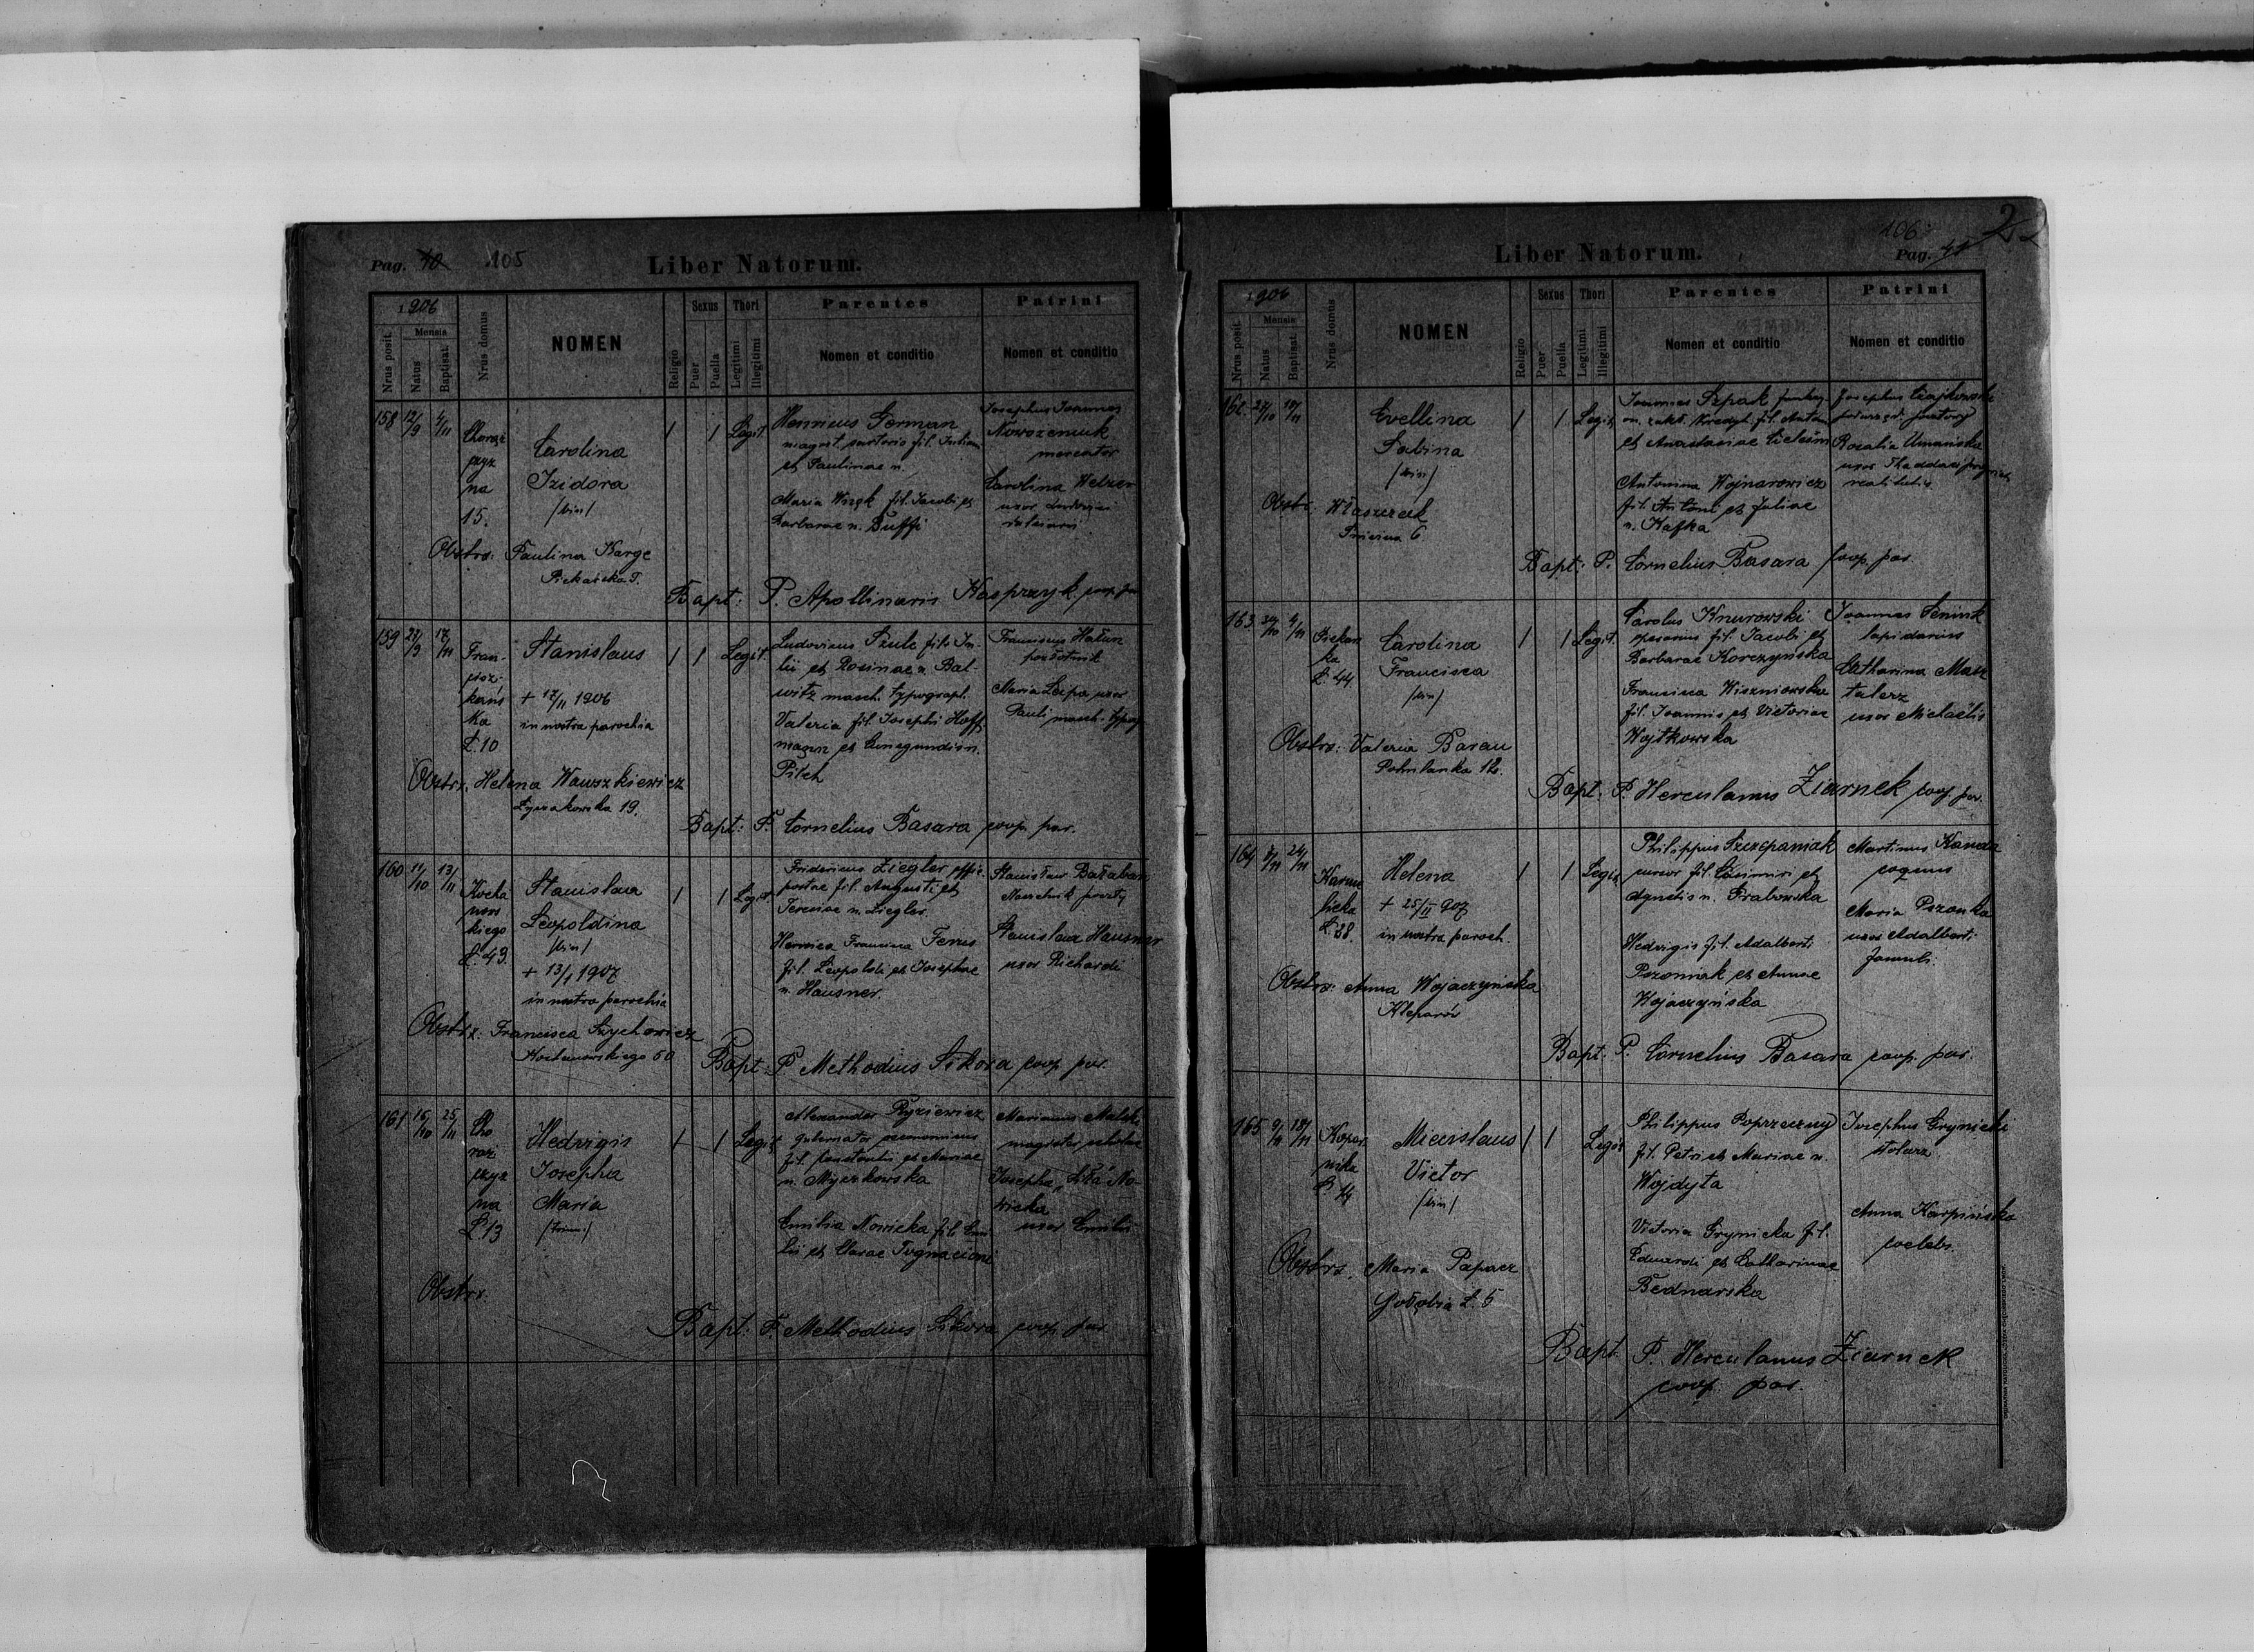 Pag. 40 105
Liber Natorum.
1906
Nrus posit.
Mensis
Natus
Baptisat.
Nrus domus
NOMEN
Religio
Sexus
Puer
Puella
Thori
Legitimi
Illegitimi
Parentes
Nomen et conditio
Patrini
Nomen et conditio
158 12/9 4/11
Chorąż
czyz
na
15.
Carolina
Izidora
/bin/
1 1 Legit.
Henricus German
magist. sartorio fil. Juliani
et Paulinae n.
Maria Wszęk fil. Jacobi et
Barbarae n. Duffi
Josephus Joannes
Nowszeniuk
mercator
Carolina Welzer
uxor Ludovici
Obstrx: Paulina Karge
Piekarska 7.
Bapt: P. Apollinaris Kasprzyk coop. par
159 23/9 17/11
Fran-
cisz-
kańs
ka
L. 10
Stanislaus
+ 17/11 1906
in nostra parochia
1 1 Legit.
Ludovicus Szulc filo Ju-
lii et Rosinae n. Bal-
witz masch. typograph.
Valeria fil. Josephi Hoff
mann et Cunegundis n.
Pitch
Franciscus Hałun
pozłotnik
Maria Lepa uxor
Pauli masch. typog
Obstrx. Helena Wawszkiewicz
Łyczakowska 19.
Bapt: P. Cornelius Basara coop. par.
160 11/10 13/11
Kocha
nows
kiego
L. 43.
Stanislava
Leopoldina
/bin/
+ 13/1 1907
in nostra parochia
1 1 Legit.
Fridericus Ziegler offic.
postae fil. Augusti et
Teresiae n. Ziegler.
Henrica Francisca Ferus
fil. Leopoldi et Josephae
n. Hausner.
Stanisław Bałaban
Naczelnik poczty
Stanislava Hausner
uxor Richardi
Obstrx: Francisca Szychowicz
Kochanowskiego 60
Bapt: P. Methodius Sikora coop. par.
161 16/10 25/11
Cho
rąż
czyz
na
L. 13
Hedvigis
Josepha
Maria
/trium/
1 1 Legit
Alexander Ryziewicz
gubernator
fil. Constantii et Mariae
n. Myczkowska
Emilia Nowicka fil. Emi
lii et Clarae Tognazioni
Marianus Malski
magister scholae
Josepha No
wicka
uxor Emilii
Obstrx.
Bapt: P. Methodius Sikora coop. par
106
Pag. 41
2
Liber Natorum.
1906
Nrus posit.
Mensis
Natus
Baptisat.
Nrus domus
NOMEN
Religio
Sexus
Puer
Puella
Thori
Legitimi
Illegitimi
Parentes
Nomen et conditio
Patrini
Nomen et conditio
162. 27/10 18/11
Evellina
Sabina
/bin/
1 1 Legit
Joannes Szpak funkcy-
on. zakł. Kredyt. fil. Antoni
et Anastasiae
Antonina Wojnarowicz
fil. Antoni et Juliae
n. Kafka
Josephus Czajkowski
Rosalia Umańska
uxor Thaddaei
realitatis
Obstr. Własuczek
6
Bapt: P. Cornelius Basara coop. par.
163. 30/10 4/11
Piekars
ka
L. 44.
Carolina
Francisca
/bin/
1 1 Legit.
Carolus Knurowski
operarius fil. Jacobi et
Barbarae Korczyńska
Francisca Wiszniowska
fil. Joannis et Victoriae
Wojtkowska
Joannes Senink
lapidarius
Catharina Masz
talerz
uxor Michaelis
Obstrx: Valeria Baran
Pohulanka 12.
Bapt: P. Herculanus Ziarnek coop. par.
164 8/11 24/11
Karme
licka
L. 38.
Helena
+ 25/II 907
in nostra paroch.
1 1 Legit
Philippus Szczepaniak
cursor fil. Casimiri et
Agnetis n. Grabowska
Hedvigis fil. Adalberti
Pszonnak et Annae
Wojaczyńska
Martinus Kanda
coquus
Maria Pszonka
uxor Adalberti
famuli.
Obstrx: Anna Wojaczyńska
Kleparów
Bapt: P. Cornelius Basara coop. par.
165 9/11 18/11
Koper
nika
L. 14
Miecislaus
Victor
/bin/
1 1 Legit
Philippus Poprzeczny
fil. Petri et Mariae n.
Wojdyta
Victoria Grynicka fil.
Eduardi et Catharinae
Bednarska
Josephus Grynicki
stolarz
Anna Karpińska
coelebs.
Obstrx. Maria Papacz
Gołębia L. 5
Bapt. P. Herculanus Ziarnek
coop. par.